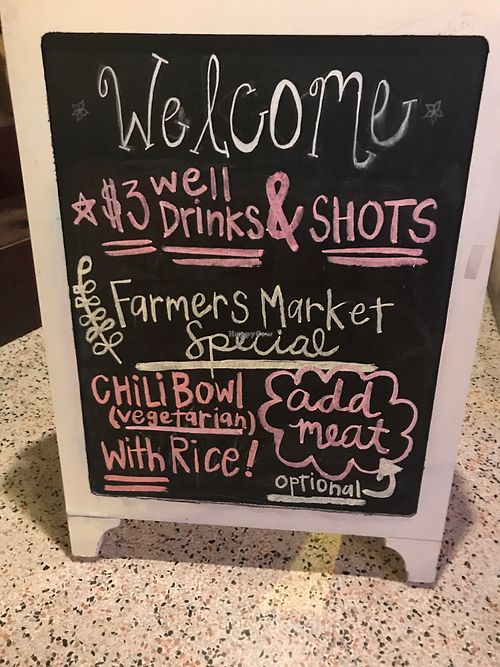 Welcome
$3 well Drinks & SHOTS
Farmers Market
Special
HappyCow
CHiLi BOWl
(vegetarian)
With Rice!
add
meat
optional